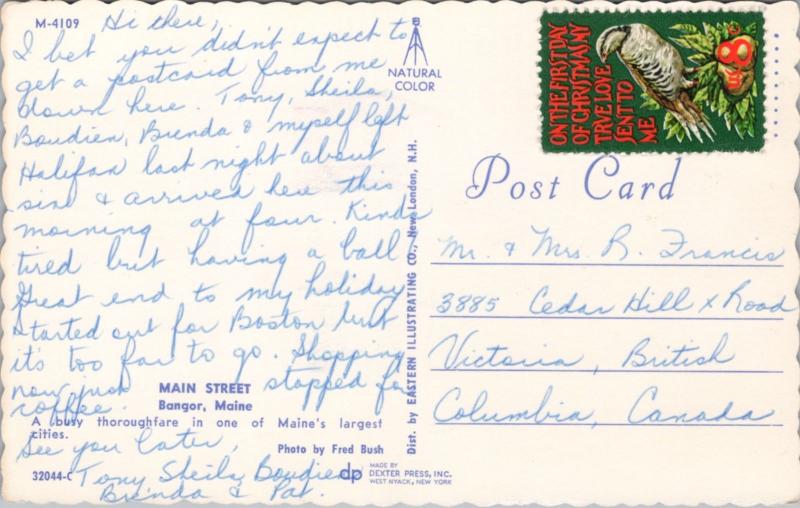 M-4109
Hi there,
I bet you didn't expect to
get a postcard from me
down here. Tony, Sheila,
Boudien, Brenda & myself left
Halifax last night about
six & arrived here this
morning at four. Kinda
tired but having a ball
Great end to my holiday
Started out for Boston but
it's too far to go. Shopping
now just stopped for
coffee.
MAIN STREET
Bangor, Maine
A busy thoroughfare in one of Maine's largest
cities.
See you later,
Photo by Fred Bush
32044-C
Tony Sheila Boudien
Brenda & Pat.
NATURAL
COLOR
Dist. by EASTERN ILLUSTRATING CO., New London, N.H.
dp
MADE BY
DEXTER PRESS, INC.
WEST NYACK, NEW YORK
ON THE FIRST DAY
OF CHRISTMAS MY
TRVE LOVE
SENT TO
ME
8c
US
Post Card
Mr. & Mrs. R. Francis
3885 Cedar Hill x Road
Victoria, British
Columbia, Canada